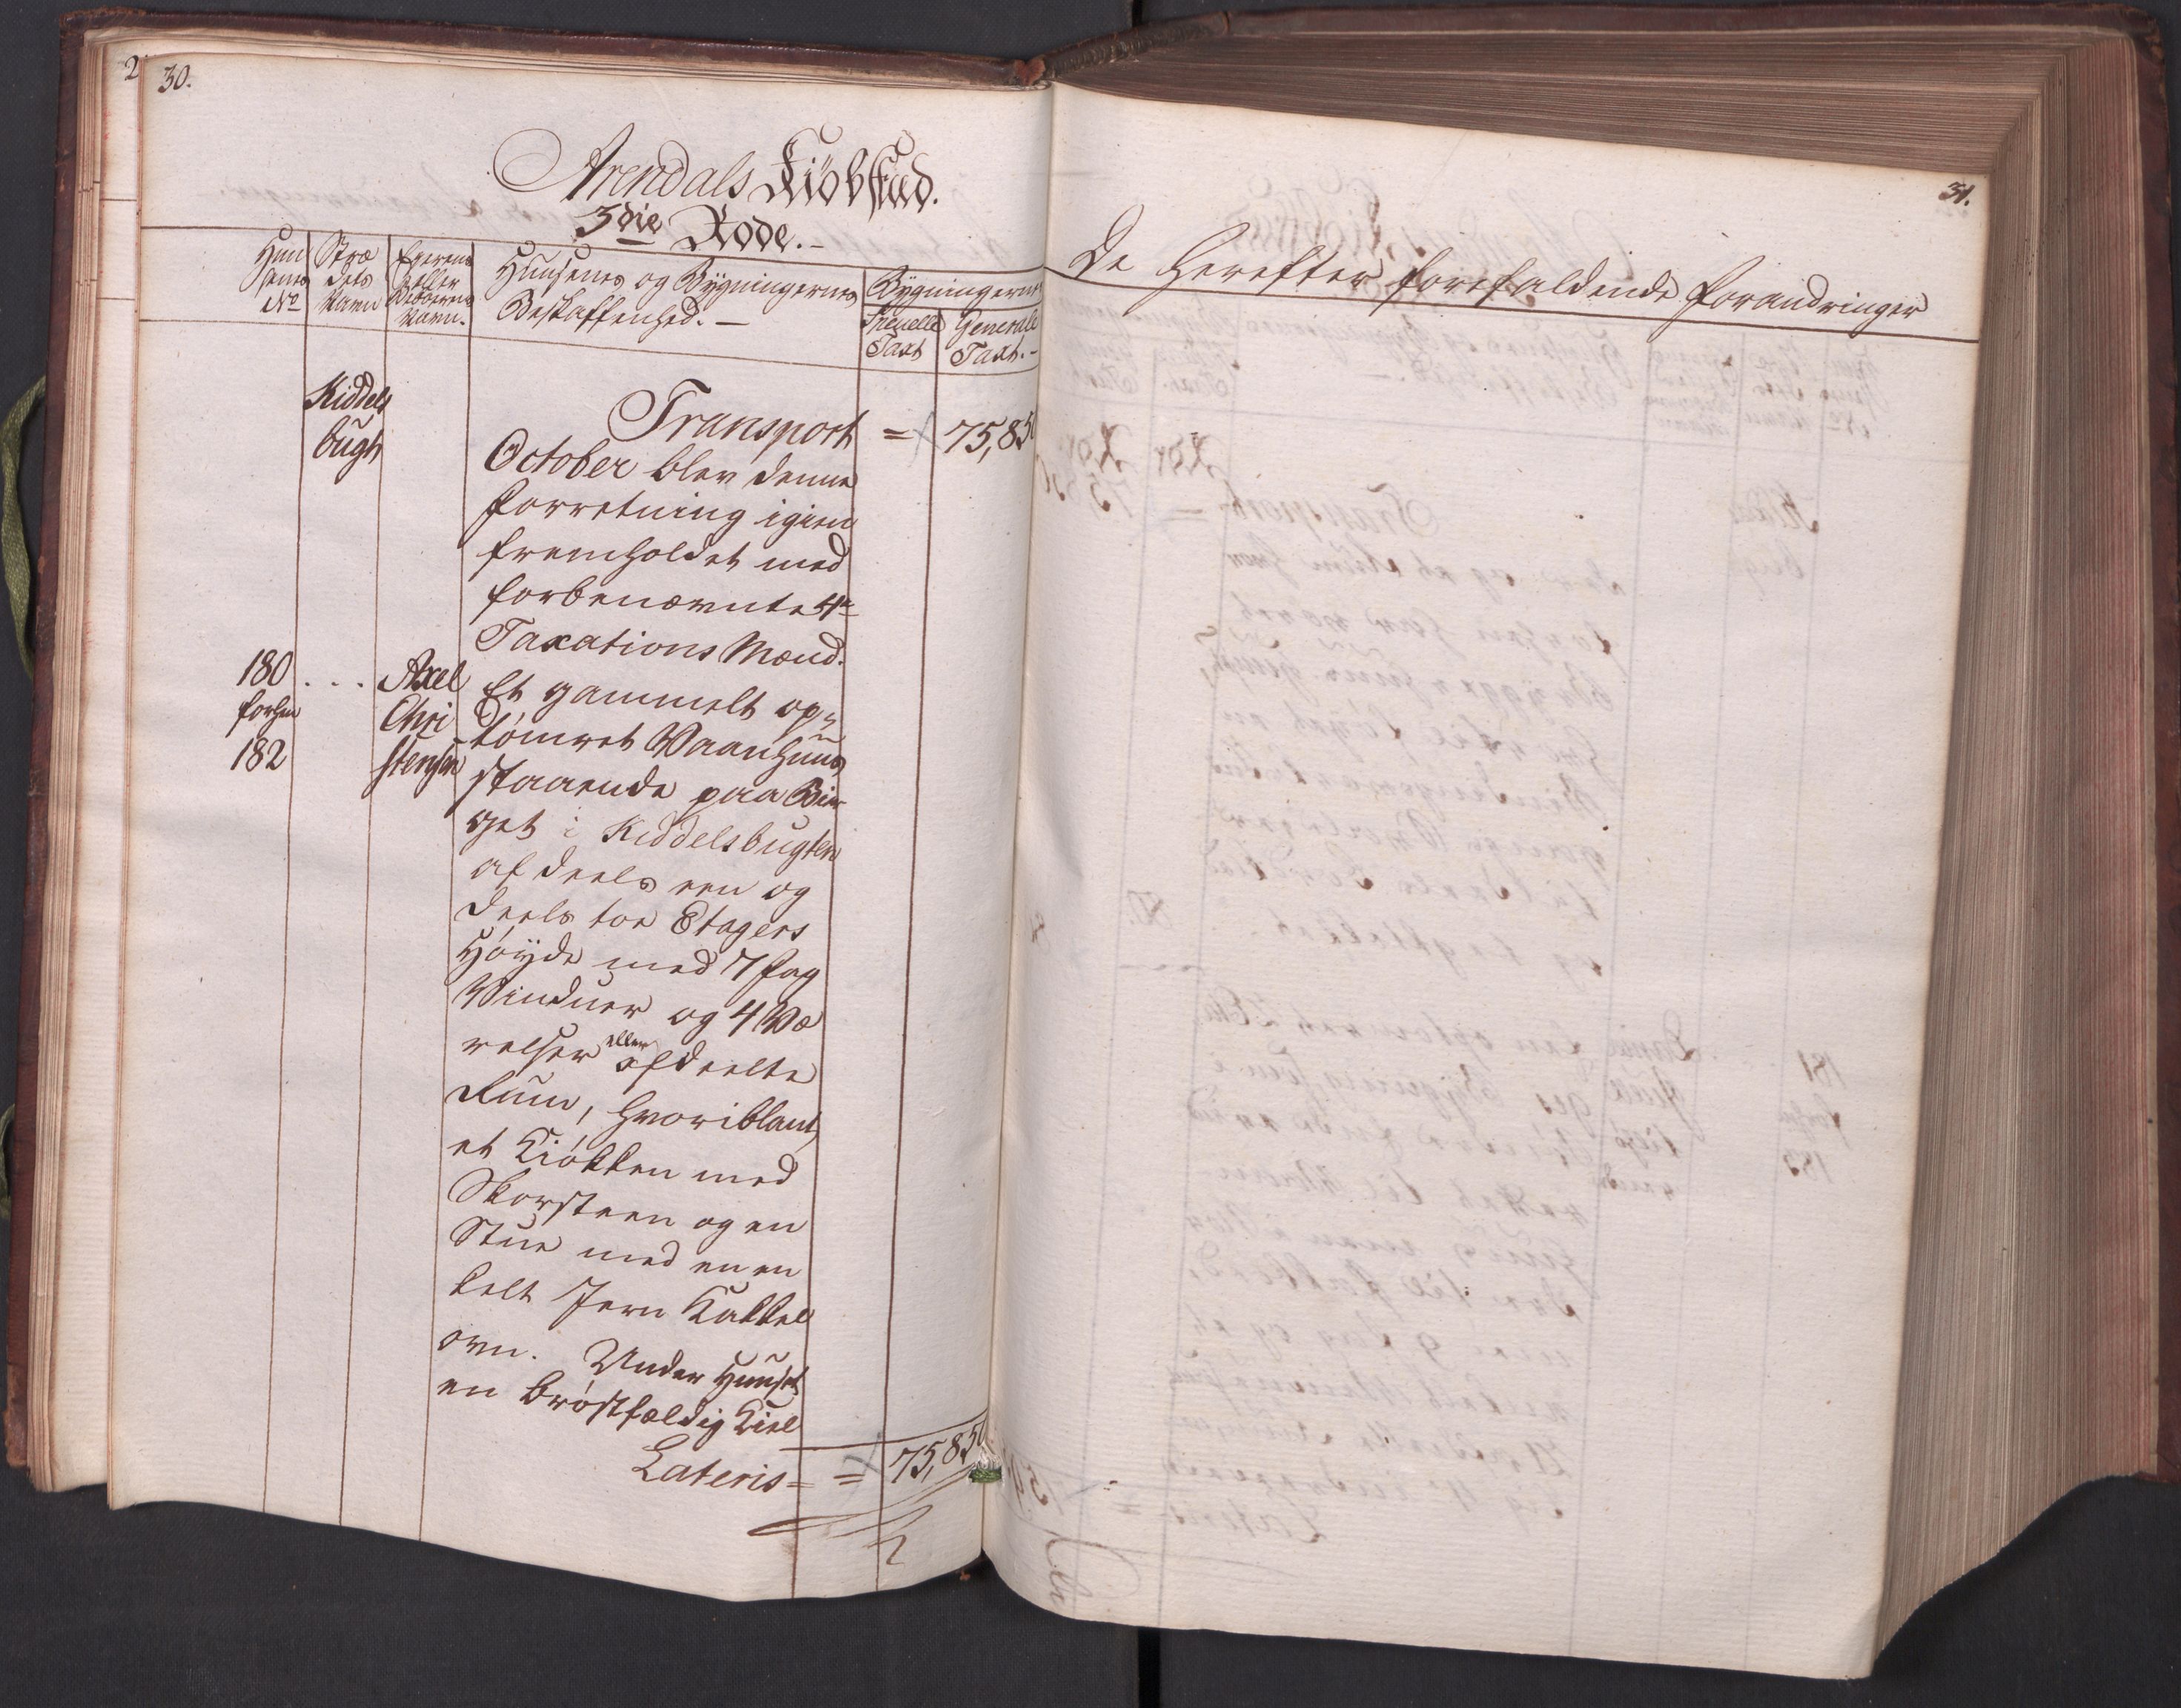 2
30.
Arendals Kiöbstad.
3die Rode.-
Huu
senes
No
Stræ
dets
Navn
Eyerens
eller
Beboerens
Navn.
Huusenes og Bygningernes
Beskaffenhed.-
Bygningernes
Specielle
Taxt
Generale
Taxt.-
Kiddels
bugt
Transport = 75,850
October blev denne
Forretning igien
fremholdet med
forbenævnte 4re
Taxations Mænd.
180 . . . Axel Et gammelt op-
forhen Chri tömret Vaanhuus
182 stensen staaende paa Bier
get i Kiddelsbugten
af deels een og
deels toe Etagers
Höyde med 7 fag
Vinduer og 4 Væ
relser eller afdeelte
Rum, hvoriblant
et Kiökken med
Skorsteen og en
Stue med en en
kelt Jern Kakkel
ovn. Under Huuset
en bröstfældig Kiel
Lateris = = 75,850
31.
De herefter forefaldende Forandringer